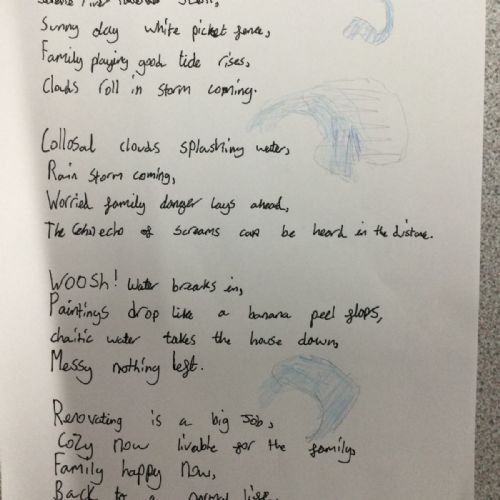 Sunny day white picket fence,
Family playing good tide rises,
Clouds roll in storm coming.
Collosal clouds splashing water,
Rain storm coming,
Worried family danger lays ahead,
The echo of screams can be heard in the distance.
WOOSH! Water breaks in,
Paintings drop like a banana peel flops,
chaitic water takes the house down,
Messy nothing left.
Renovating is a big Job,
Cozy now livable for the family,
Family happy now,
Back to a normal life.